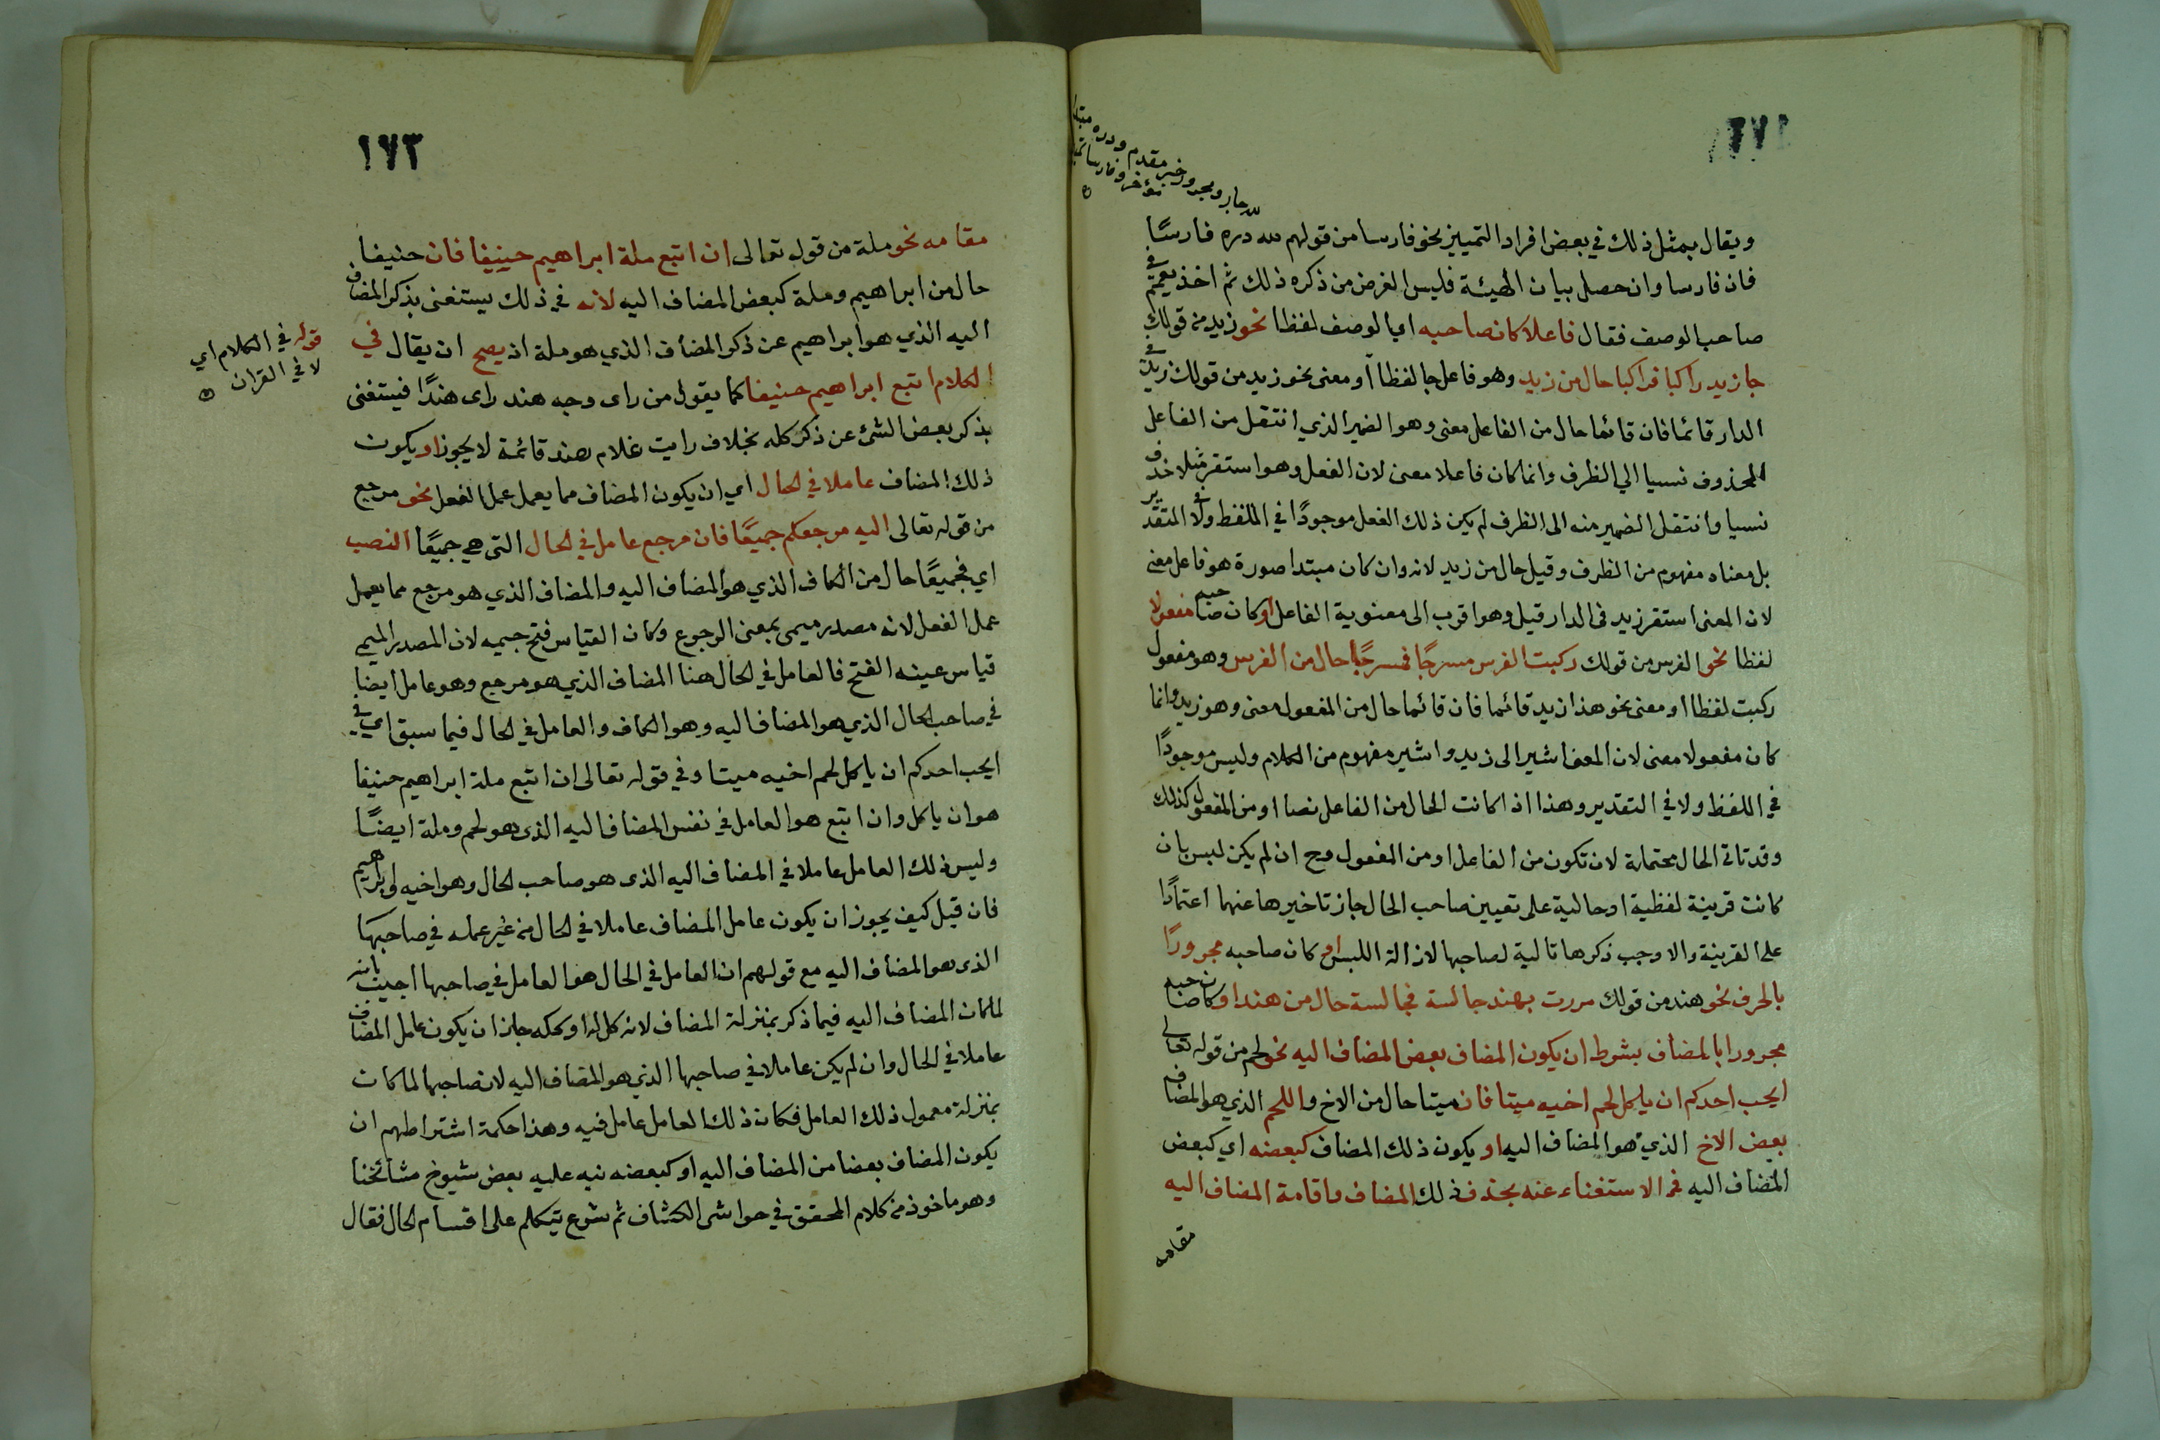 ويقال بمثل ذلك في بعض افراد التمييز نحو فارسا من قولهم لله دره فارسًا
فان فارسا وان حصل بيان الهيئة فليس الغرض من ذكره ذلك ثم اخذ يعمم في
صاحب الوصف فقال فاعلا كان صاحبه اي الوصف لفظا نحو زيد من قولك
جا زيد راكبا فراكبا حال من زيد وهو فاعل جا لفظاً او معنى نحو زيد من قولك زيد في
الدار قائما فان قائما حال من الفاعل معنى وهو الضمير الذي انتقل من الفاعل
المحذوف نسيا الي الظرف وانما كان فاعلا معنى لان الفعل وهو استقر مثلا حذف
نسيا وانتقل الضمير منه الى الظرف لم يكن ذلك الفعل موجودًا في اللفظ ولا في التقدير
بل معناه مفهوم من الظرف وقيل حال من زيد لانه وان كان مبتدا صورة هو فاعل معنى
لان المعنى استقر زيد في الدار قيل وهو اقرب الى معنوية الفاعل او كان صاحبه مفعولا
لفظا نحو الفرس من قولك ركبت الفرس مسرجًا فمسرجًا حال من الفرس وهو مفعول
ركبت لفظا او معنى نحو هذا زيد قائما فان قائما حال من المفعول معنى وهو زيد وانما
كان مفعولا معنى لان المعنى اشير الى زيد واشير مفهوم من الكلام وليس موجودًا
في اللفظ ولا في التقدير وهذا اذا كانت الحال من الفاعل نصا او من المفعول كذلك
وقد تاتي الحال محتملة لان تكون من الفاعل او من المفعول وح ان لم يكن لبس بان
كانت قرينة لفظية او حالية على تعيين صاحب الحال جاز تاخيرها عنهما اعتمادًا
على القرينة والا وجب ذكرها تالية لصاحبها لازالة اللبس او كان صاحبه مجرورًا
بالحرف نحو هند من قولك مررت بهند جالسة فجالسة حال من هند او كان صاحبه
مجرورا بالمضاف بشرط ان يكون المضاف بعض المضاف اليه نحو لحم من قوله تعالى
ايحب احدكم ان ياكل لحم اخيه ميتا فان ميتا حال من الاخ واللحم الذي هو المضاف
بعض الاخ الذي هو المضاف اليه او يكون ذلك المضاف كبعضه اي كبعض
المضاف اليه في الاستغناء عنه بحذف ذلك المضاف واقامة المضاف اليه
مقامه
لله جار ومجرور خبر مقدم ودره مبتدا
مؤخر وفارسا تمييز
١٧٣
مقامه نحو ملة من قوله تعالى ان اتبع ملة ابراهيم حنيفا فان حنيفا
حال من ابراهيم وملة كبعض المضاف اليه لانه في ذلك يستغنى بذكر المضاف
اليه الذي هو ابراهيم عن ذكر المضاف الذي هو ملة اذ يصح ان يقال في
الكلام اتبع ابراهيم حنيفا كما يقول من راى وجه هند راى هندًا فيستغنى
بذكر بعض الشئ عن ذكر كله بخلاف رايت غلام هند قائمة لا يجوز او يكون
ذلك المضاف عاملا في الحال اي ان يكون المضاف مما يعمل عمل الفعل نحو مرجع
من قوله تعالى اليه مرجعكم جميعًا فان مرجع عامل في الحال التى هي جميعًا النصب
اي فجميعًا حال من الكاف الذي هو المضاف اليه والمضاف الذي هو مرجع مما يعمل
عمل الفعل لانه مصدر ميمى بمعنى الرجوع وكان القياس فتح جيمه لان المصدر الميمي
قياس عينه الفتح فالعامل في الحال هنا المضاف الذي هو مرجع وهو عامل ايضا
في صاحب الحال الذي هو المضاف اليه وهو الكاف والعامل في الحال فيما سبق اي في
ايحب احدكم ان ياكل لحم اخيه ميتا وفي قوله تعالى ان اتبع ملة ابراهيم حنيفا
هو ان ياكل وان اتبع هو العامل في نفس المضاف اليه الذي هو لحم وملة ايضًا
وليس ذلك العامل عاملا في المضاف اليه الذى هو صاحب الحال وهو اخيه وابراهيم
فان قيل كيف يجوز ان يكون عامل المضاف عاملا في الحال من غير عمله في صاحبها
الذى هو المضاف اليه مع قولهم ان العامل في الحال هو العامل في صاحبها اجيب بانه
لما كان المضاف اليه فيما ذكر بمنزلة المضاف لانه كل له او كله جاز ان يكون عامل المضاف
عاملا في الحال وان لم يكن عاملا في صاحبها الذي هو المضاف اليه لان صاحبها لما كان
بمنزلة معمول ذلك العامل فكان ذلك العامل عامل فيه وهذا حكمة اشتراطهم ان
يكون المضاف بعضا من المضاف اليه او كبعضه نبه عليه بعض شيوخ مشائخنا
وهو ماخوذ من كلام المحقق في حواشى الكشاف ثم شرع يتكلم على اقسام الحال فقال
قوله في الكلام اي
لا في القران